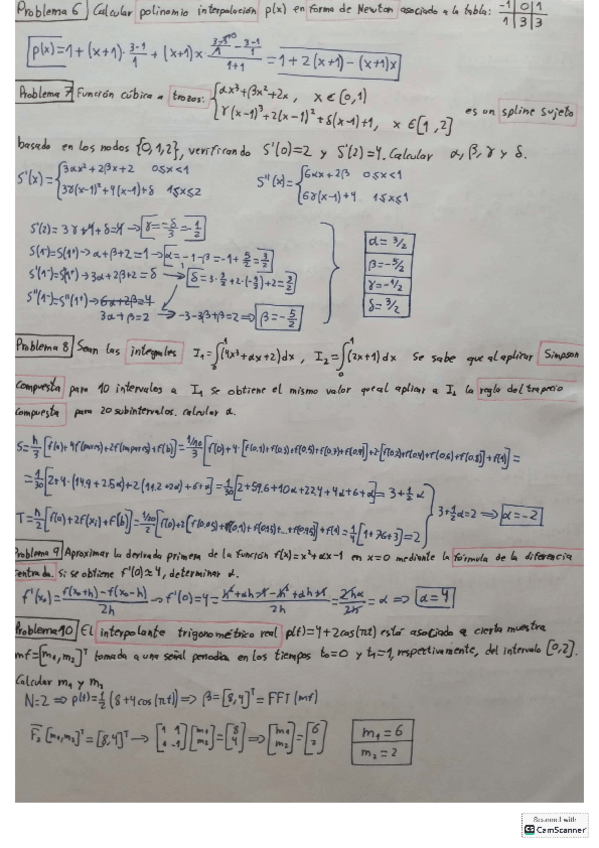 Problema 6 Calcular polinomio interpolación p(x) en forma de Newton asociado a la tabla: -1 | 0 | 1
1 | 3 | 3
p(x)=1+(x+1)·(3-1)/1 + (x+1)x = 1+2(x+1)-(x+1)x
Problema 7 Función cúbica a trozos: { αx³+βx²+2x, x∈[0,1)
γ(x-1)³+2(x-1)²+δ(x-1)+1, x∈[1,2] es un spline sujeto
basado en los nodos {0,1,2}, verificando S'(0)=2 y S'(2)=4. Calcular α, β, γ y δ.
S'(x)= { 3αx²+2βx+2 0≤x<1 S''(x)= { 6αx+2β 0≤x<1
3γ(x-1)²+4(x-1)+δ 1≤x≤2 6γ(x-1)+4 1≤x≤
S'(2)=3γ+4+δ=4 → γ=-δ/3=-1/2
S(1⁻)=S(1⁺)→α+β+2=1→ α=-1-β=-1+5/2=3/2
S'(1⁻)=S'(1⁺)→3α+2β+2=δ → δ=3·3/2+2·(-5/2)+2=3/2
S''(1⁻)=S''(1⁺)→6α+2β=4
3α+β=2 → -3-3β+β=2 ⇒ β=-5/2
α=3/2
β=-5/2
γ=-1/2
δ=3/2
Problema 8 Sean las integrales I₁=∫₀¹(4x³+αx+2)dx, I₂=∫₀¹(2x+1)dx Se sabe que al aplicar Simpson
compuesta para 10 intervalos a I₁ se obtiene el mismo valor que al aplicar a I₂ la regla del trapecio
compuesta para 20 subintervalos. calcular α.
S=h/3[f(a)+4f(pares)+2f(impares)+f(b)]=(1/10)/3[f(0)+4·[f(0,1)+f(0,3)+f(0,5)+f(0,7)+f(0,9)]+2[f(0,2)+f(0,4)+f(0,6)+f(0,8)]+f(1)]=
=1/30[2+4·(14,9+2,5α)+2(11,2+2α)+6+α]=1/30[2+59,6+10α+22,4+4α+6+α]=3+1/2α
3+1/2α=2 ⇒ α=-2
T=h/2[f(a)+2f(xi)+f(b)]=(1/20)/2[f(0)+2[f(0,05)+f(0,1)+f(0,15)+...+f(0,95)]+f(1)]=1/40[1+76+3]=2
Problema 9 Aproximar la derivada primera de la función f(x)=x²+αx-1 en x=0 mediante la fórmula de la diferencia
centrada. Si se obtiene f'(0)≈4, determinar α.
f'(x₀)=(f(x₀+h)-f(x₀-h))/2h → f'(0)=4=(h²+αh-1-h²+αh+1)/2h=2hα/2h=α ⇒ α=4
Problema 10 El interpolante trigonométrico real p(t)=4+2cos(πt) está asociado a cierta muestra
mf=[m₁,m₂]ᵀ tomada a una señal periodica en los tiempos t₀=0 y t₁=1, respectivamente, del intervalo [0,2].
Calcular m₁ y m₂
N=2 ⇒ p(t)=1/2(8+4cos(πt))⇒ β=[8,4]ᵀ=FFT(mf)
F̅₂[m₁,m₂]ᵀ=[8,4]ᵀ → [1 1; 1 -1][m₁; m₂]=[8; 4]⇒[m₁; m₂]=[6; 2]
m₁=6
m₂=2
Scanned with
CS CamScanner